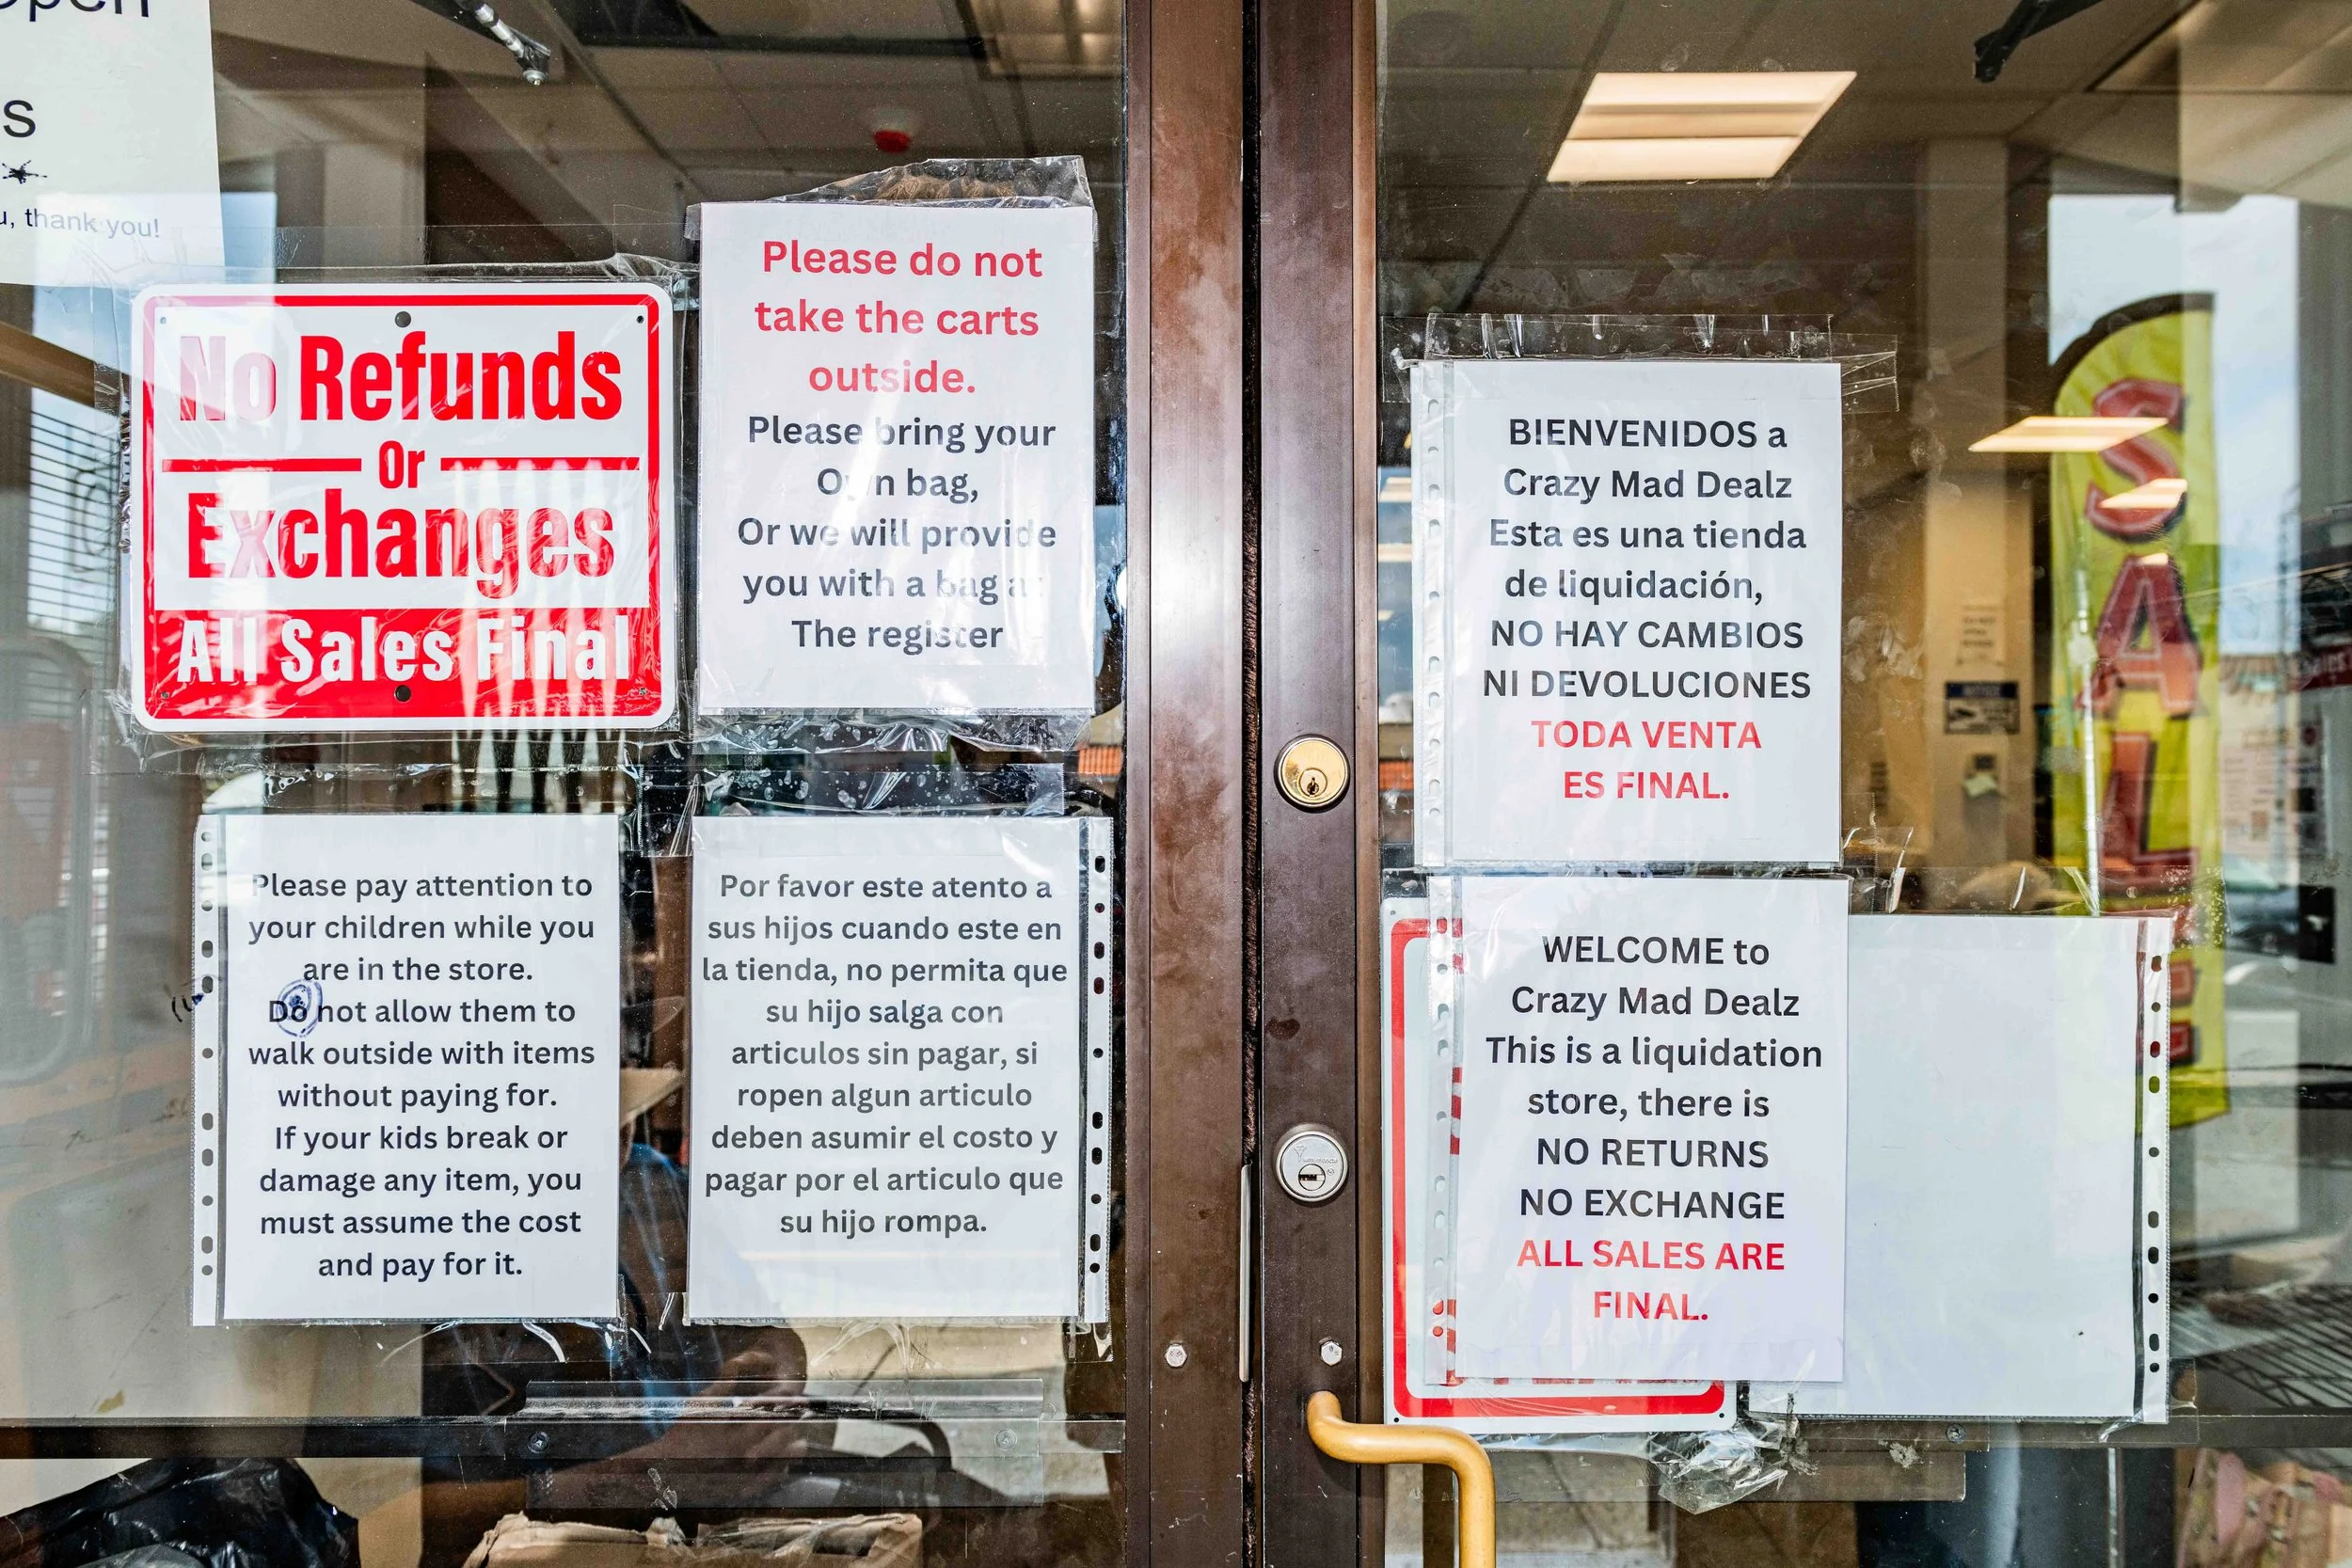 s
thank you!
No Refunds
Or
Exchanges
All Sales Final
Please do not
take the carts
outside.
Please bring your
Own bag,
Or we will provide
you with a bag
The register
Please pay attention to
your children while you
are in the store.
Do not allow them to
walk outside with items
without paying for.
If your kids break or
damage any item, you
must assume the cost
and pay for it.
Por favor este atento a
sus hijos cuando este en
la tienda, no permita que
su hijo salga con
articulos sin pagar, si
ropen algun articulo
deben asumir el costo y
pagar por el articulo que
su hijo rompa.
BIENVENIDOS a
Crazy Mad Dealz
Esta es una tienda
de liquidación,
NO HAY CAMBIOS
NI DEVOLUCIONES
TODA VENTA
ES FINAL.
WELCOME to
Crazy Mad Dealz
This is a liquidation
store, there is
NO RETURNS
NO EXCHANGE
ALL SALES ARE
FINAL.
SALE